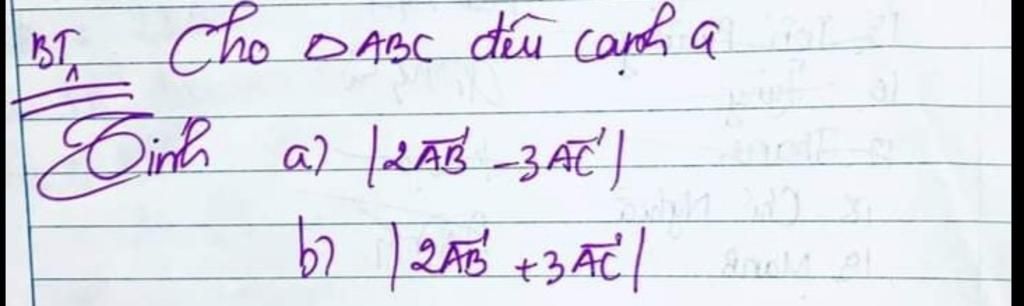 BT1 Cho △ABC đều cạnh a
Tính a) |2\overrightarrow{AB} - 3\overrightarrow{AC}|
b) |2\overrightarrow{AB} + 3\overrightarrow{AC}|